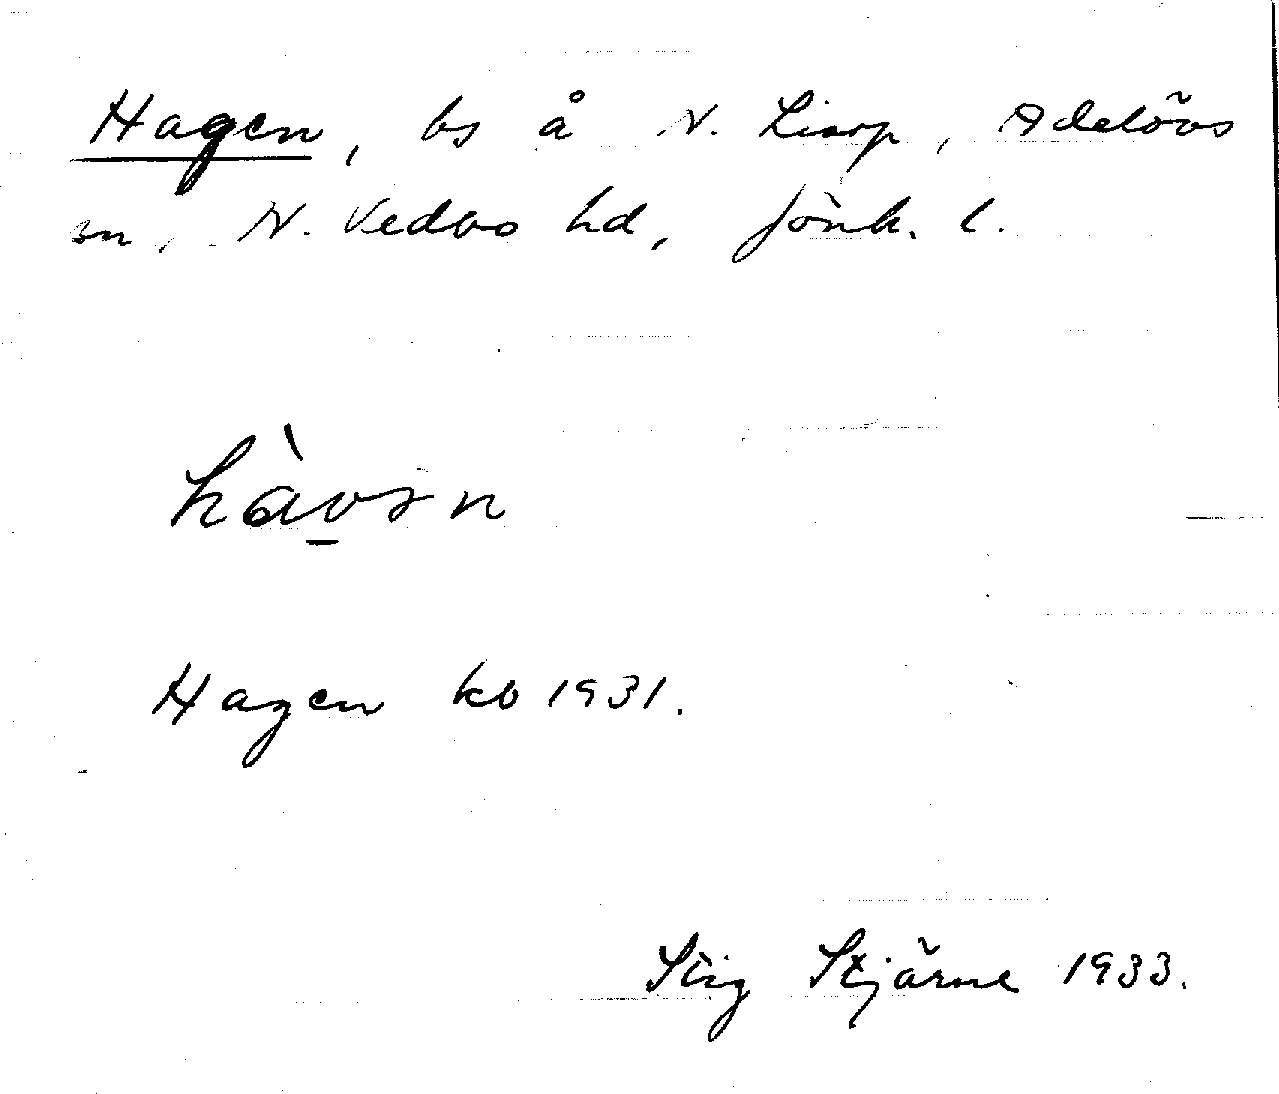 Hagen, bs å N. Linop, Adelövs
sn, N. Vedbo hd, Jönk. l.
hàvən
Hagen kb 1931.
Stig Stjärne 1933.